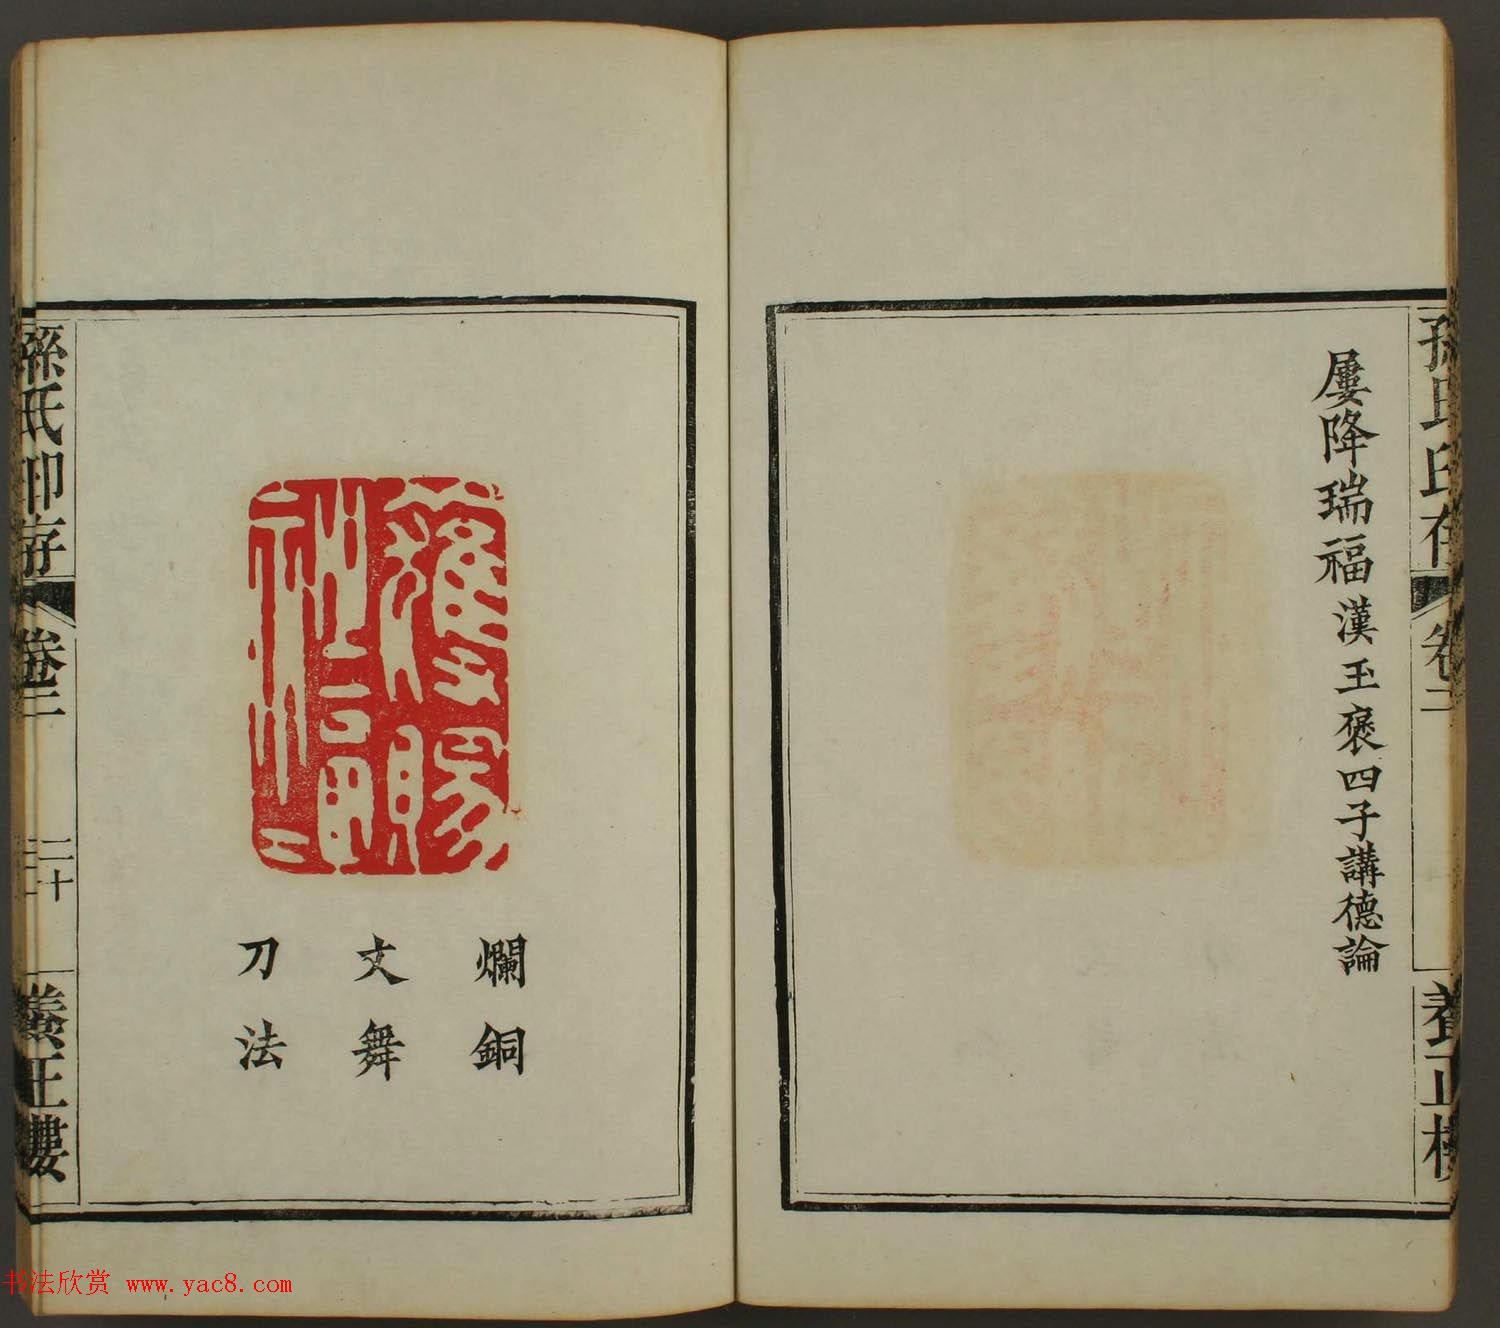 孫氏印存
卷二
養正樓
屢降瑞福 漢王褒四子講德論
爛銅
文舞
刀法
孫氏印存
卷二
二十
養正樓
书法欣赏 www.yac8.com